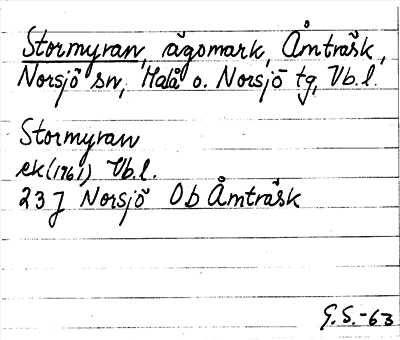 Stormyran, ägomark, Åmträsk,
Norsjö sn, Malå o. Norsjö tg, Vb.l.
Stormyran
ek(1961) Vb.l.
23J Norsjö Ob Åmträsk
G.S.-63